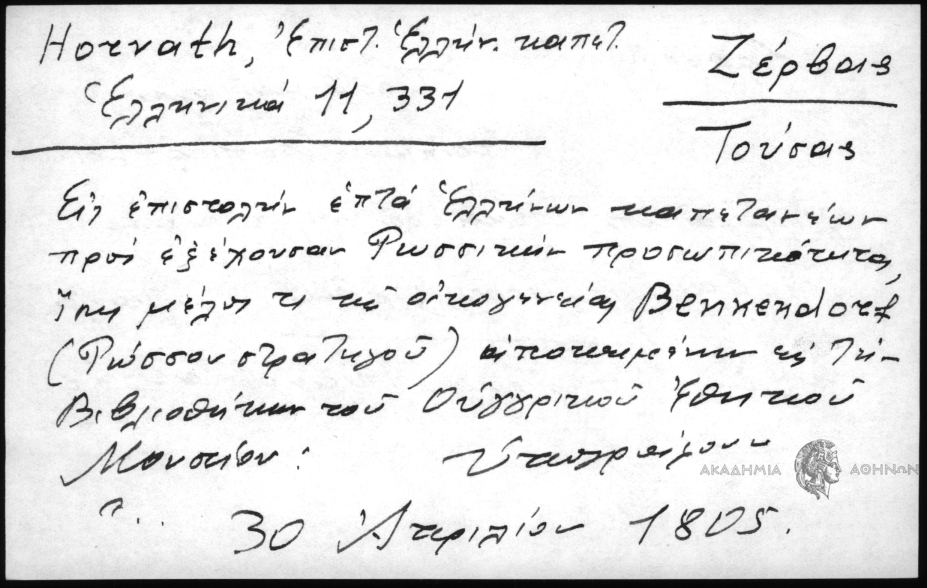 Horvath, Ἐπιστ. Ἑλλήν. καπετ.
Ἑλληνικά 11, 331
Ζέρβας
Τούσας
Εἰς ἐπιστολήν ἑπτά Ἑλλήνων καπεταναίων
πρός ἐξέχουσαν Ρωσσικήν προσωπικότητα,
ἴσως μέλος τι τῆς οἰκογενείας Benkendorf
(Ρώσσου στρατηγοῦ) ἀποκειμένην εἰς τήν
Βιβλιοθήκην τοῦ Οὑγγρικοῦ Ἐθνικοῦ
Μουσείου: ὑπογράφουν
ΑΚΑΔΗΜΙΑ ΑΘΗΝΩΝ
".. 30 Ἀπριλίου 1805.